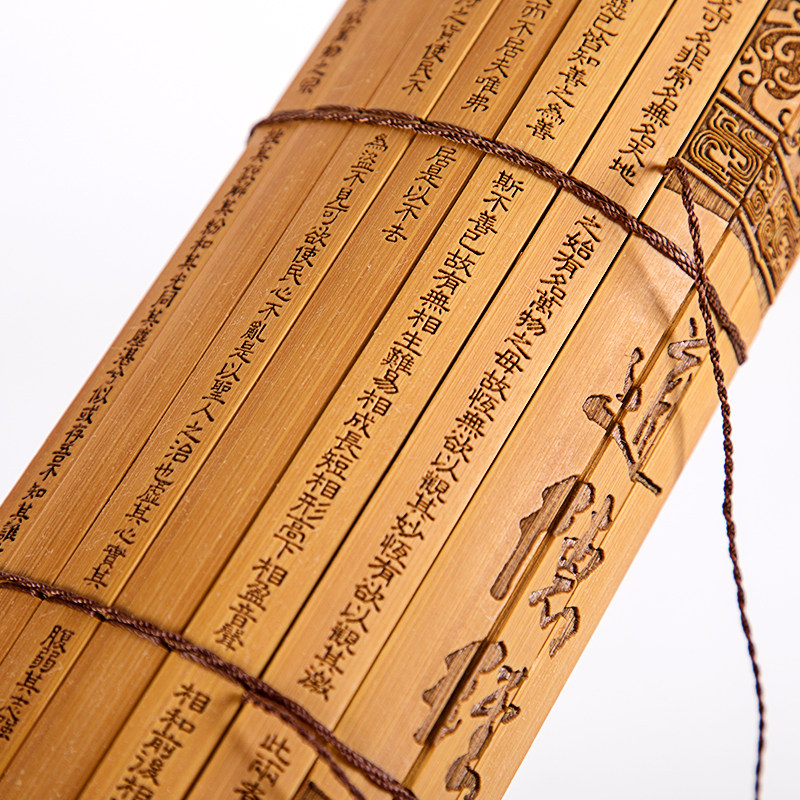 道德經
名可名非常名無名天地之始有名萬物之母故恆無欲以觀其妙恆有欲以觀其徼此兩者
已皆知善之為善斯不善已故有無相生難易相成長短相形高下相盈音聲相和前後相
而不居夫唯弗居是以不去
之貨使民不為盜不見可欲使民心不亂是以聖人之治也虛其心實其腹弱其志強
物之宗挫其銳解其紛和其光同其塵湛兮似或存吾不知其誰